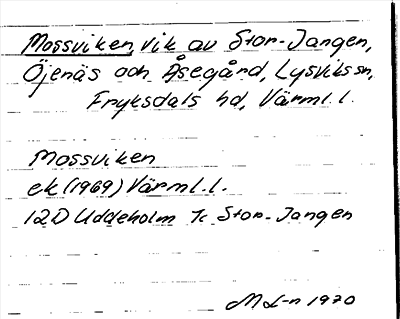 Mossviken, vik av Stor-Jangen,
Öjenäs och Åsegård, Lysviks sn,
Fryksdals hd, Värml. l.
Mossviken
ek (1969) Värml. l.
12D Uddeholm 7c Stor-Jangen
ML-n 1970